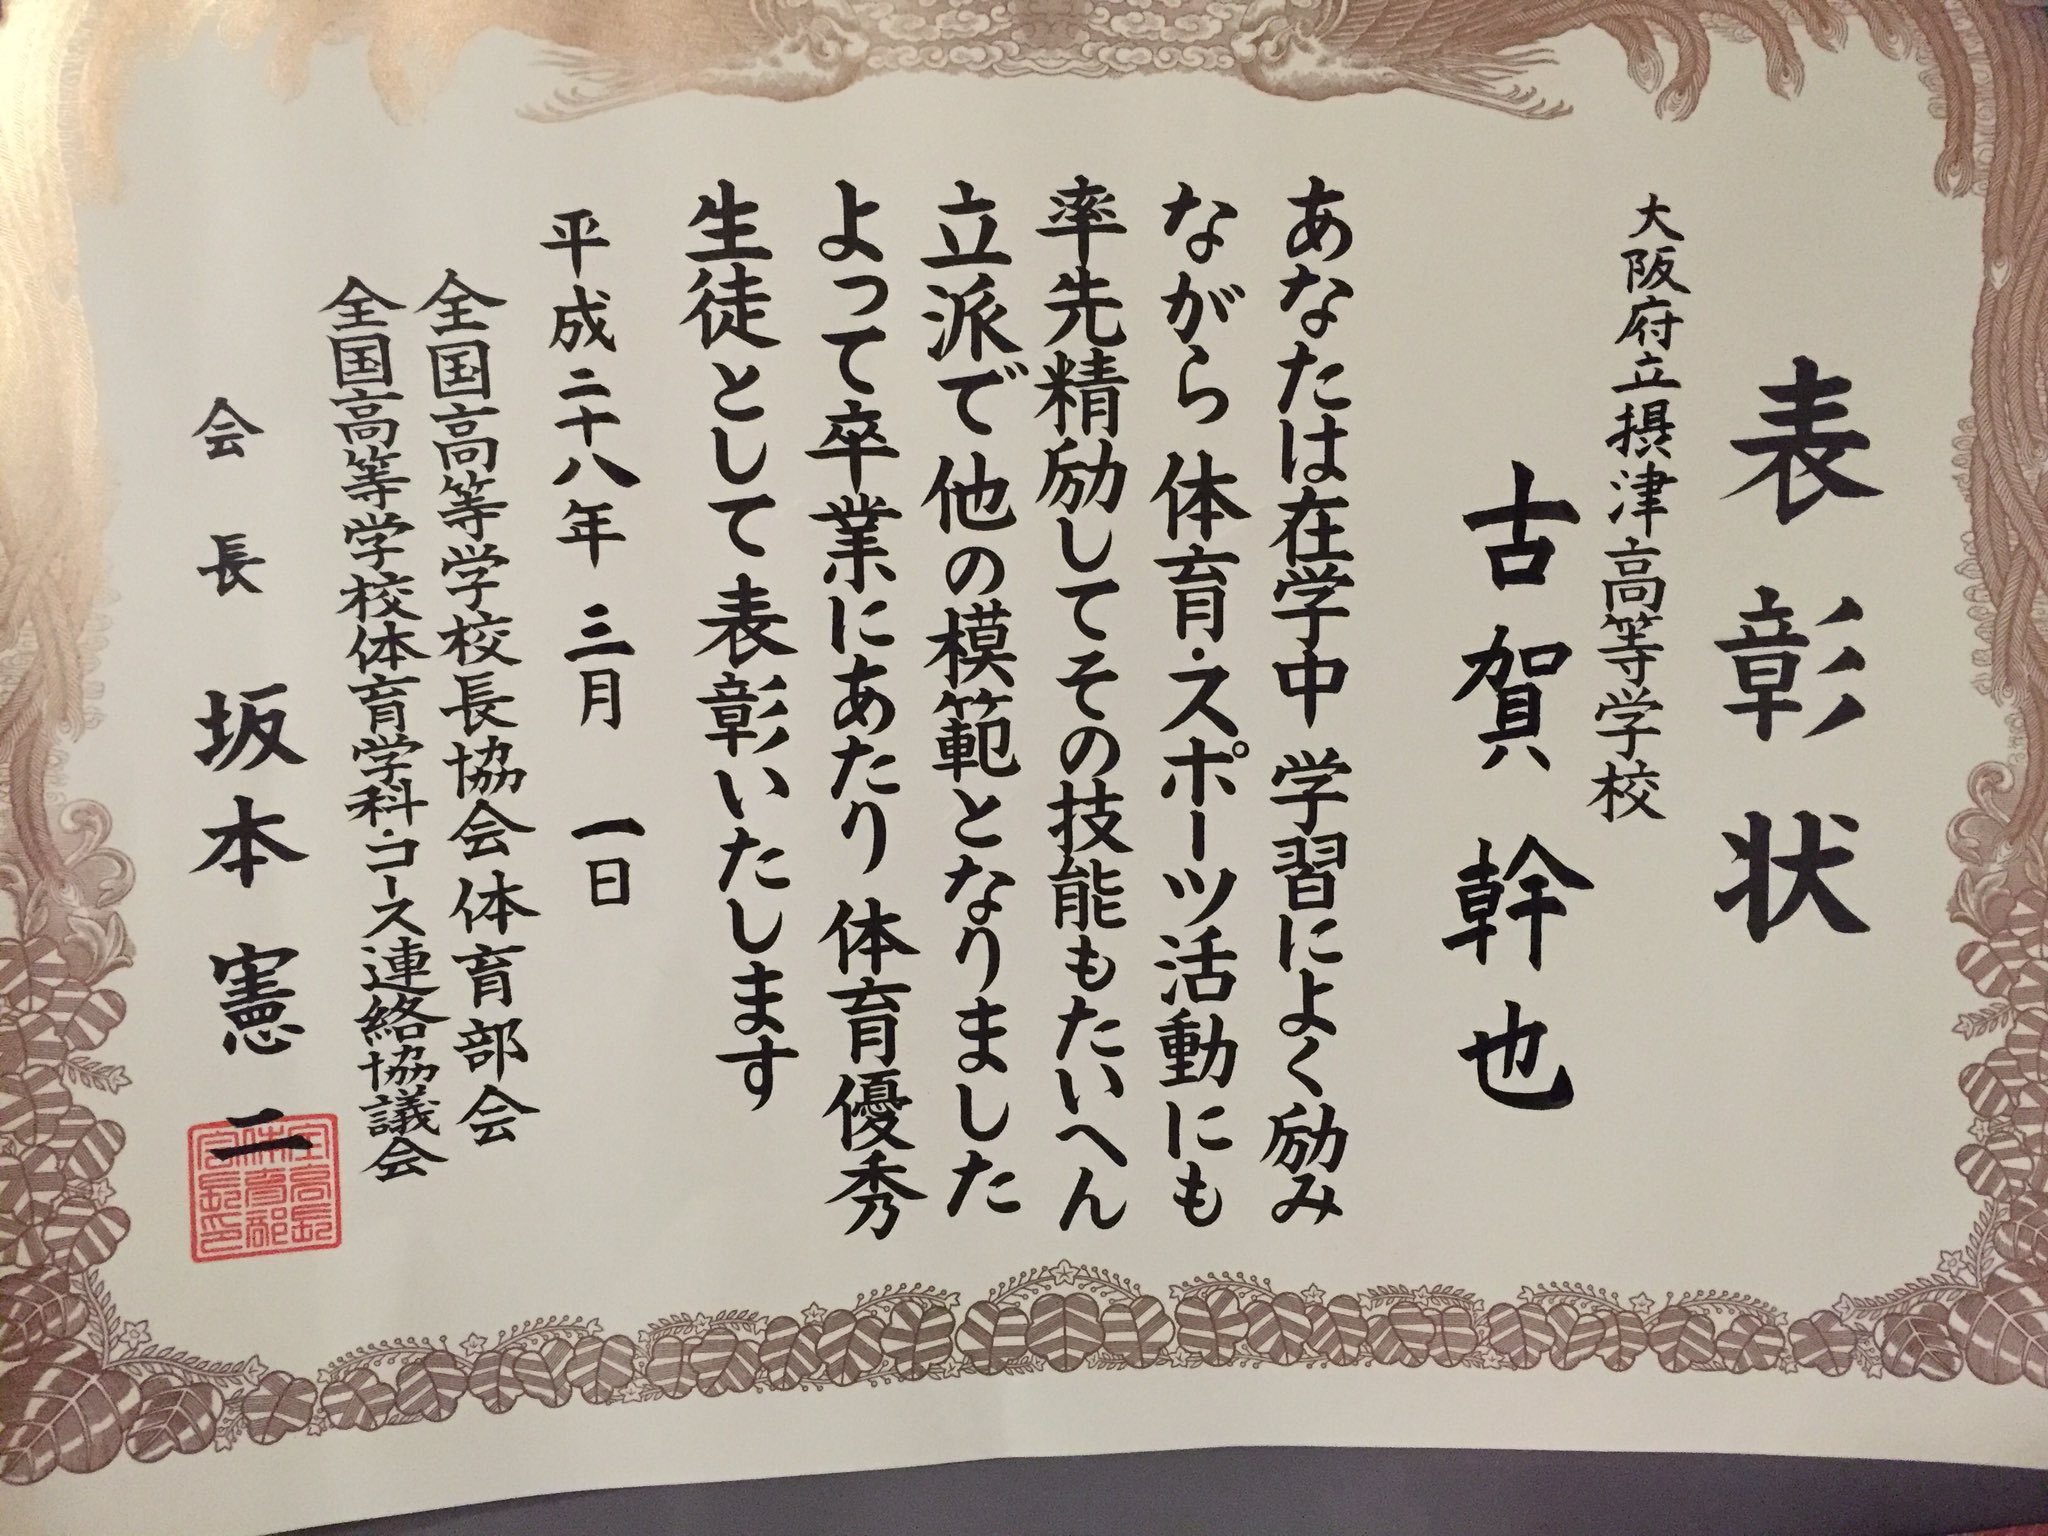 表彰状
大阪府立摂津高等学校
古賀幹也
あなたは在学中学習によく励み
ながら体育・スポーツ活動にも
率先精励してその技能もたいへん
立派で他の模範となりました
よって卒業にあたり体育優秀
生徒として表彰いたします
平成二十八年三月一日
全国高等学校長協会体育部会
全国高等学校体育学科・コース連絡協議会
会長 坂本憲二